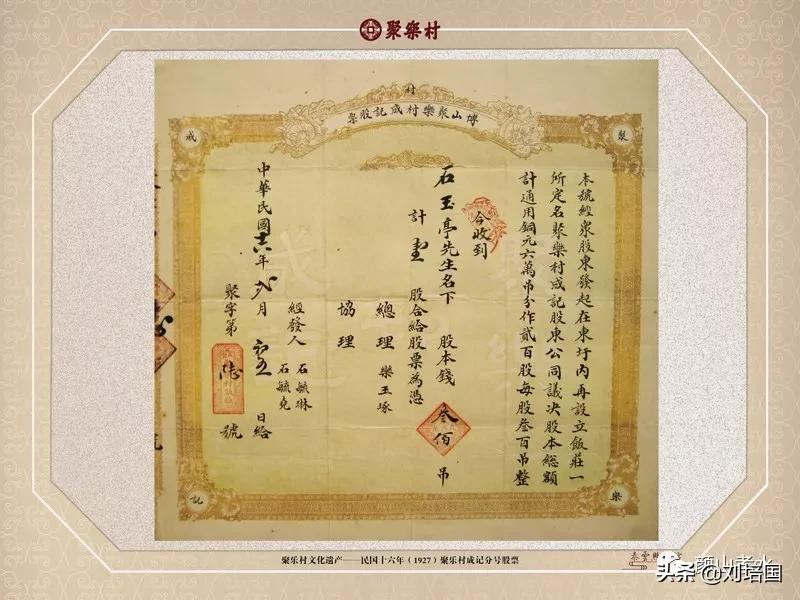 聚樂村
村
博山聚樂村成記股票
聚
樂
成
記
本號經衆股東發起在東圩內再設立飯莊一
所定名聚樂村成記股東公同議决股本總額
計通用銅元六萬吊分作貳百股每股叁百吊整
今收到
石玉亭先生名下 股本錢叁佰吊
計壹股合給股票為憑
總理 欒玉琢
協理
經發人 石毓琳
石毓堯
中華民國十六年弍月 日給
聚字第陸號
聚乐村文化遗产——民国十六年（1927）聚乐村成记分号股票
头条 @刘培国